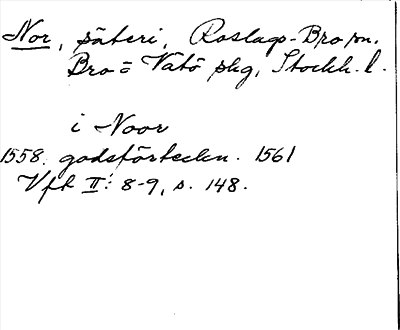 Nor, säteri, Roslags-Bro sn.
Bro o Vätö skg, Stockh. l.
i Noor
1558. godsförteckn. 1561
Vfh II: 8-9, s. 148.